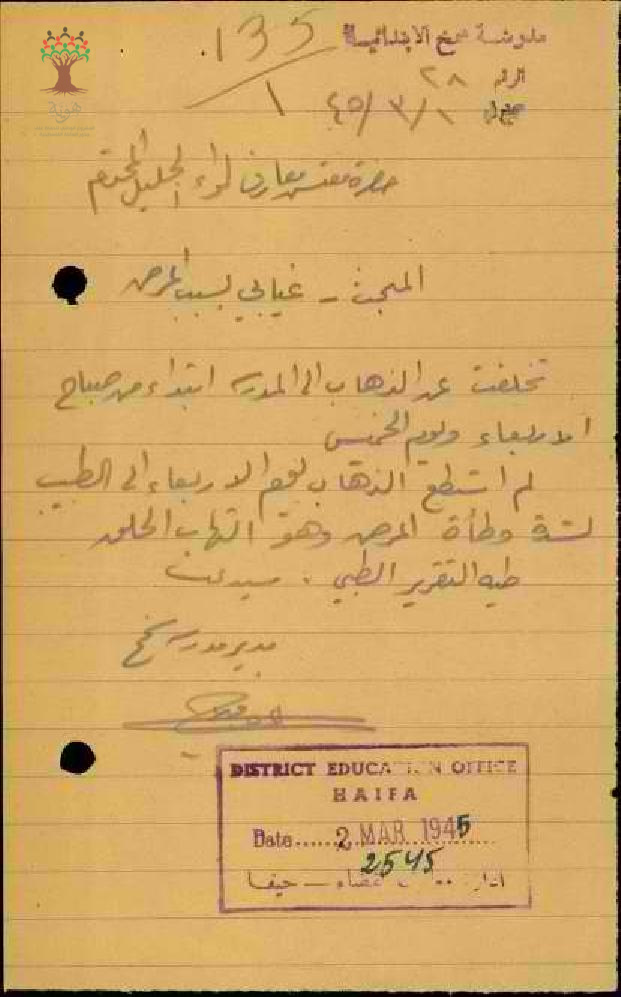 مدرسة سمخ الابتدائية
135
1
الرقم ٢٨
سمخ في ١/٣/٤٥
حضرة مفتش معارف لواء الجليل المحترم
المبحث - غيابي بسبب المرض
تخلفت عن الذهاب الى المدرسه ابتداء من صباح
الاربعاء ويوم الخميس
لم استطع الذهاب يوم الاربعاء الى الطبيب
لشدة وطأة المرض وهو التهاب الحلق
طيه التقرير الطبي . سيدي
مدير مدرسة سمخ
DISTRICT EDUCATION OFFICE
HAIFA
Date...... 2 MAR 1945
2545
حيفا